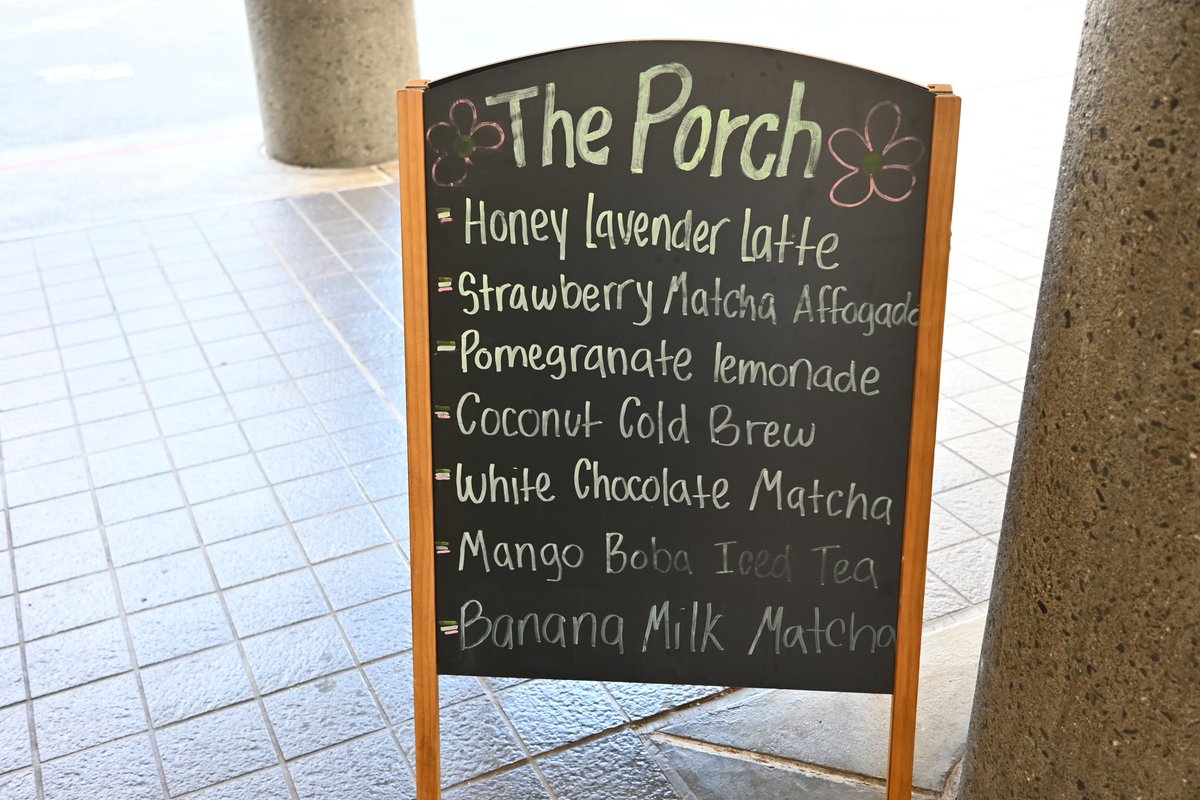 The Porch
Honey Lavender Latte
Strawberry Matcha Affogado
Pomegranate lemonade
Coconut Cold Brew
White Chocolate Matcha
Mango Boba Iced Tea
Banana Milk Matcha